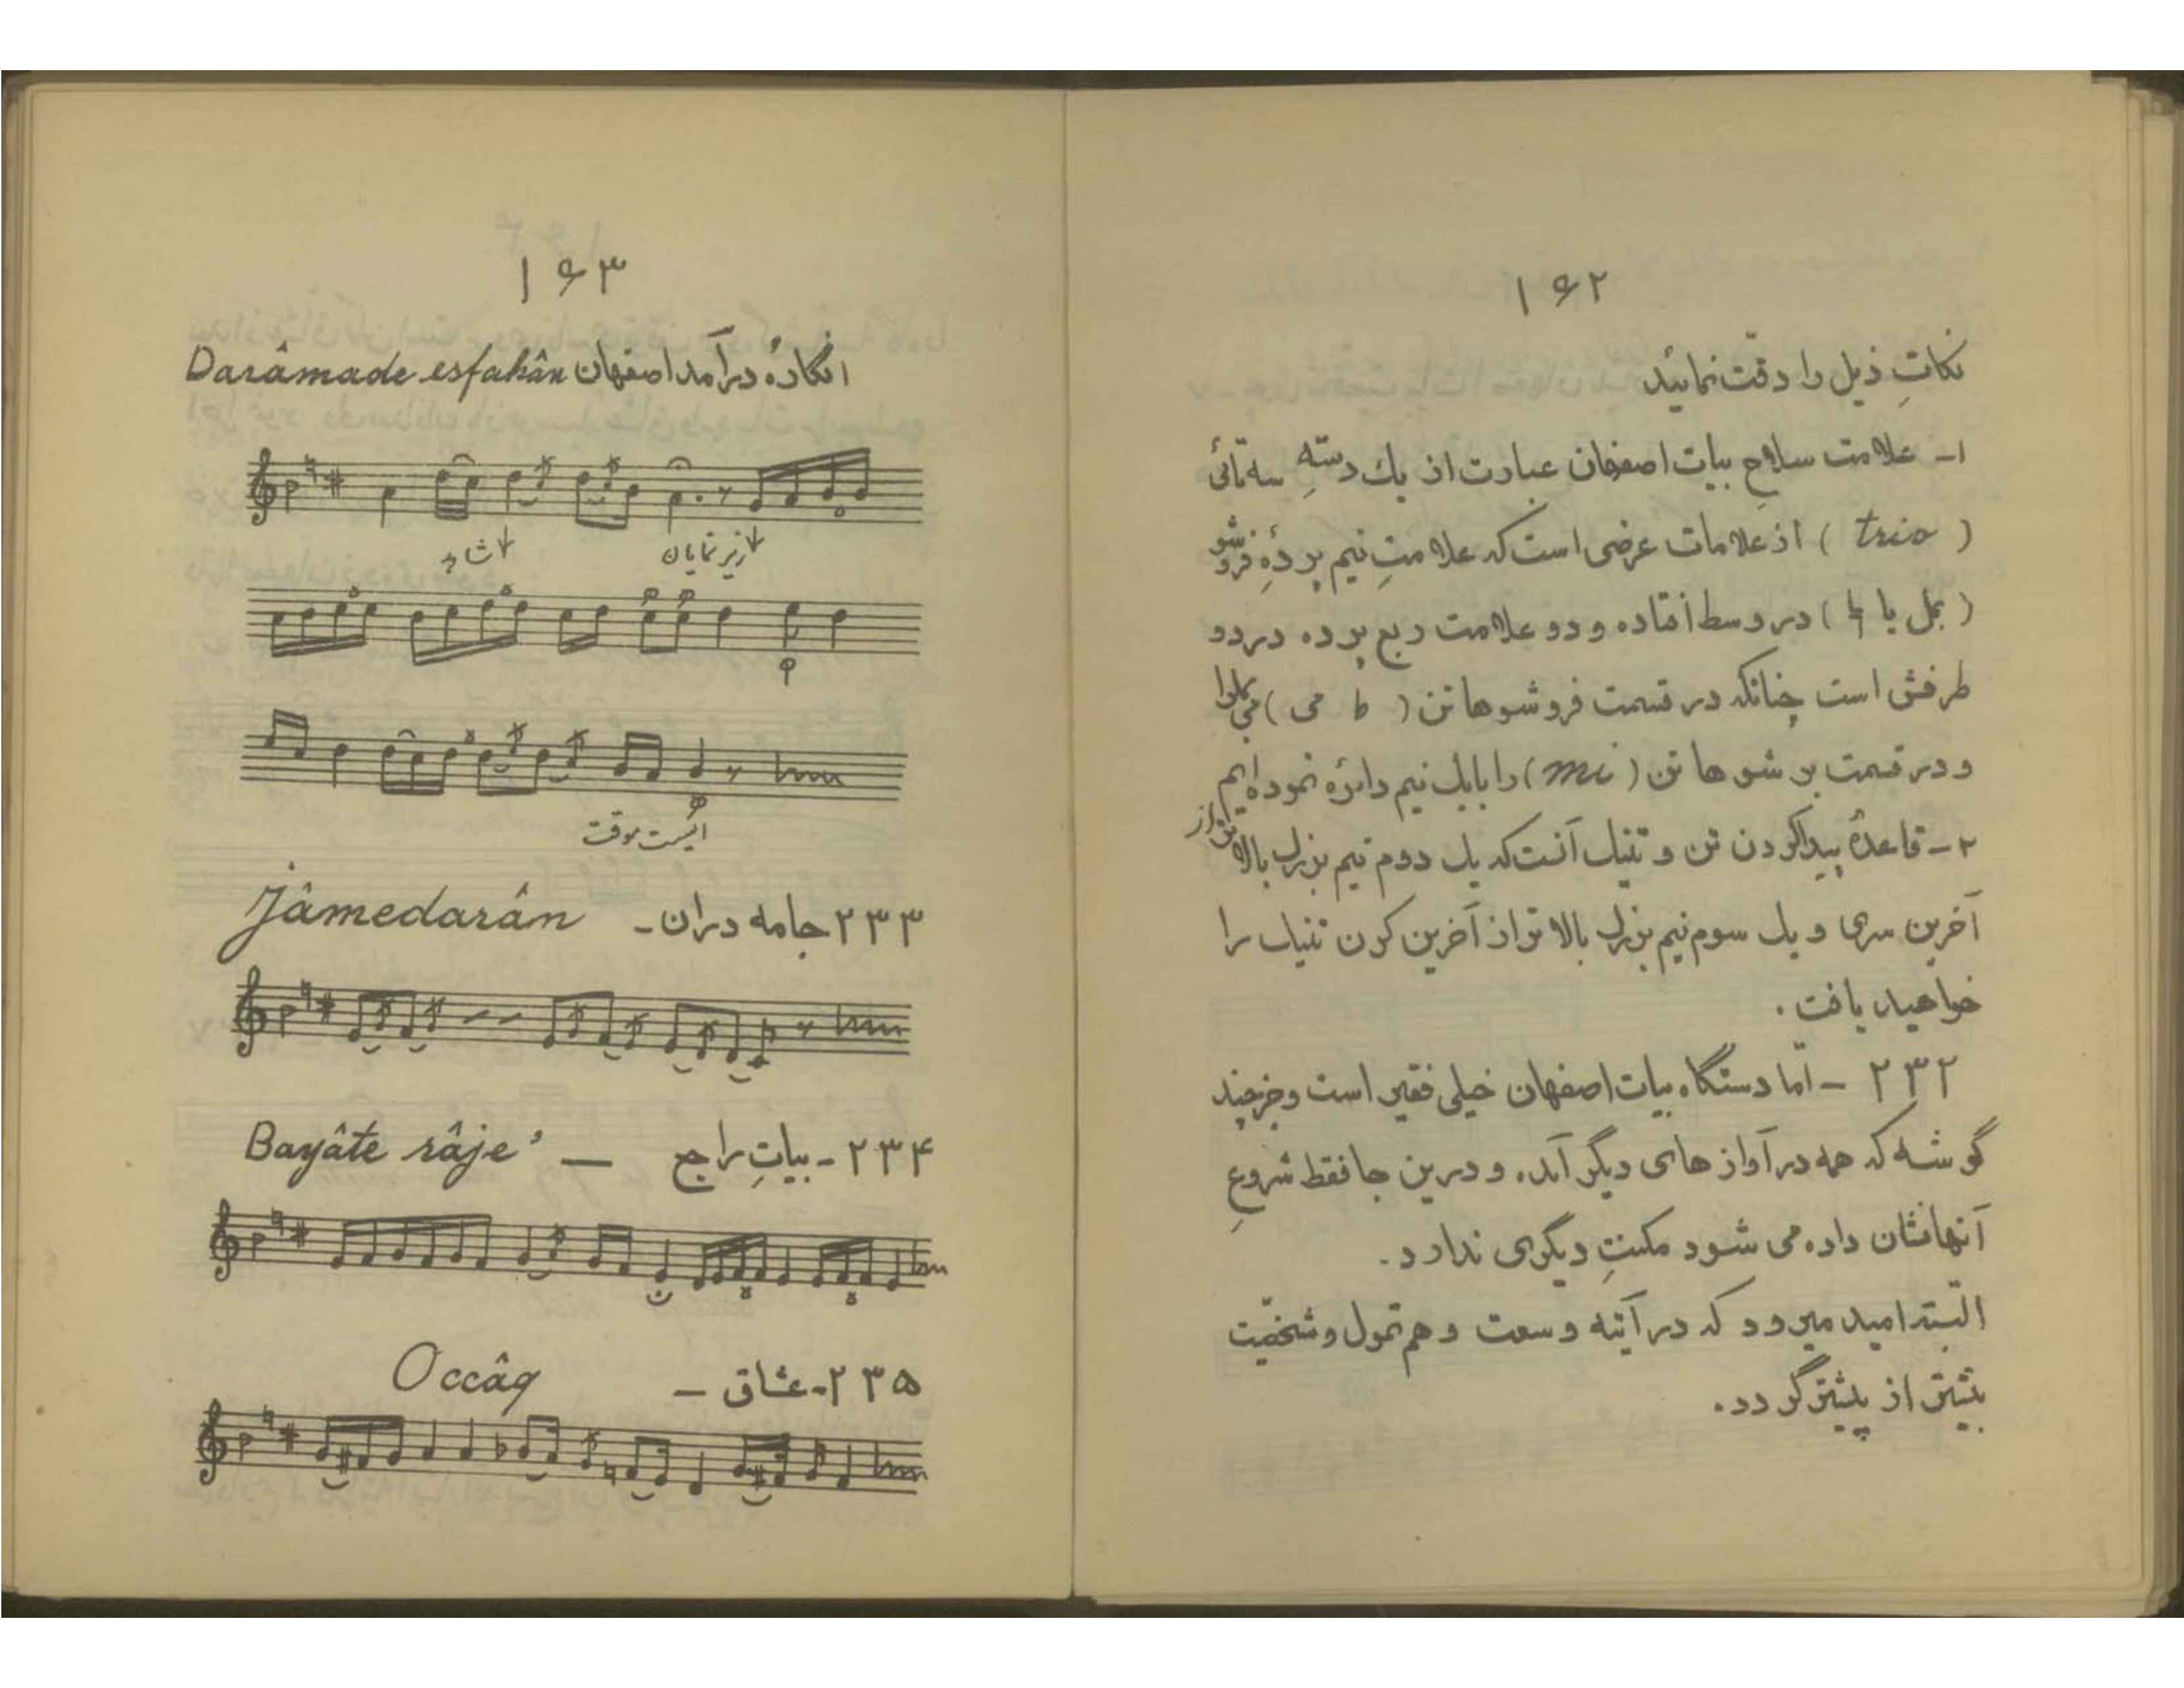 ۱۶۲
نکاتِ ذیل را دقّت نمائید
۱- علامت سلاحِ بیات اصفهان عبارت از یک دستهِ سه تائی
( trio ) از علامات عرضی است که علامتِ نیم پردهٔ فروشو
( بمل یا ) در وسط افتاده و دو علامت ربع پرده در دو
طرفش است چنانکه در قسمت فروشوها تن ( ط می )
و در قسمت بر شوها تن ( mi ) را با یک نیم دائره نموده ایم
۲- قاعدهٔ پیدا کردن تن و تنیک آنست که یک دوم نیم بزرگ بالاتر از
آخرین سری و یک سوم نیم بزرگ بالاتر از آخرین کرن تنیک را
خواهید یافت .
۲۳۲ - امّا دستگاه بیات اصفهان خیلی فقیر است و جز چند
گوشه که همه در آوازهای دیگر آمده و درین جا فقط شروعِ
آنها نشان داده می شود مکنتِ دیگری ندارد .
البتّه امید میرود که در آتیه وسعت و هم تمول و شخصّیت
بیشتر از پیشتر گردد .
۱۶۳
انگارهٔ درآمد اصفهان Darâmade esfahân
شاهد زیر نمایان
ایست موقت
۲۳۳ جامه دران - Jâmedarân
۲۳۴ - بیاتِ راجع — Bayâte râje'
۲۳۵ - عشاق — Occâq